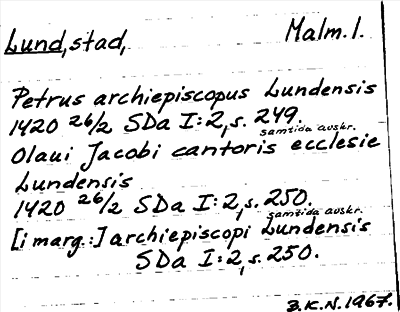 Lund, stad, Malm. l.
Petrus archiepiscopus Lundensis
1420 26/2 SDa I:2, s. 249.
samtida avskr.
Olaui Jacobi cantoris ecclesie
Lundensis
1420 26/2 SDa I:2, s. 250.
samtida avskr.
[i marg.:] archiepiscopi Lundensis
SDa I:2, s. 250.
B.K.N. 1967.